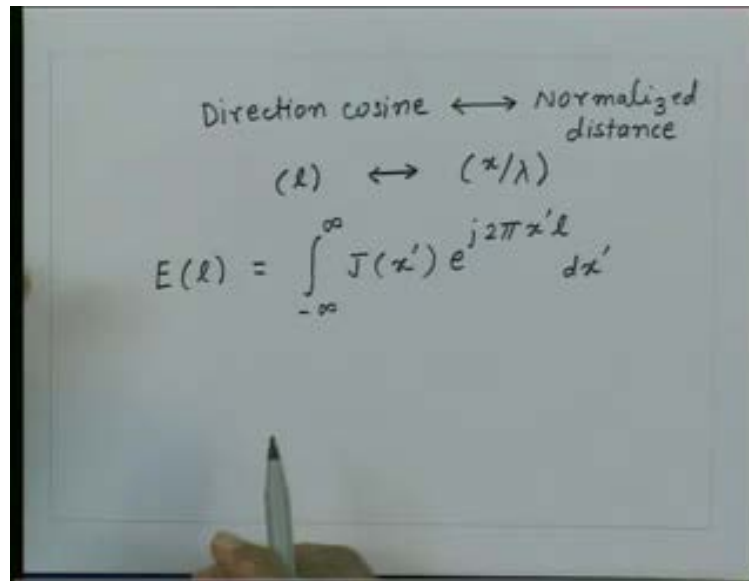 Direction cosine ⟷ Normalized
distance
(l) ⟷ (x/λ)
E(l) = ∫_{-∞}^{∞} J(x') e^{j2πx'l} dx'